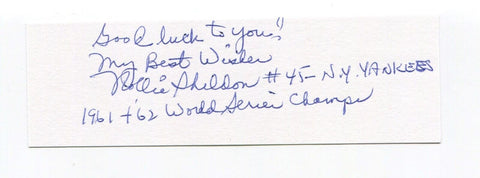 Good luck to you!!
My Best Wishes
Rollie Sheldon #45- N.Y. YANKEES
1961 + '62 World Series Champs